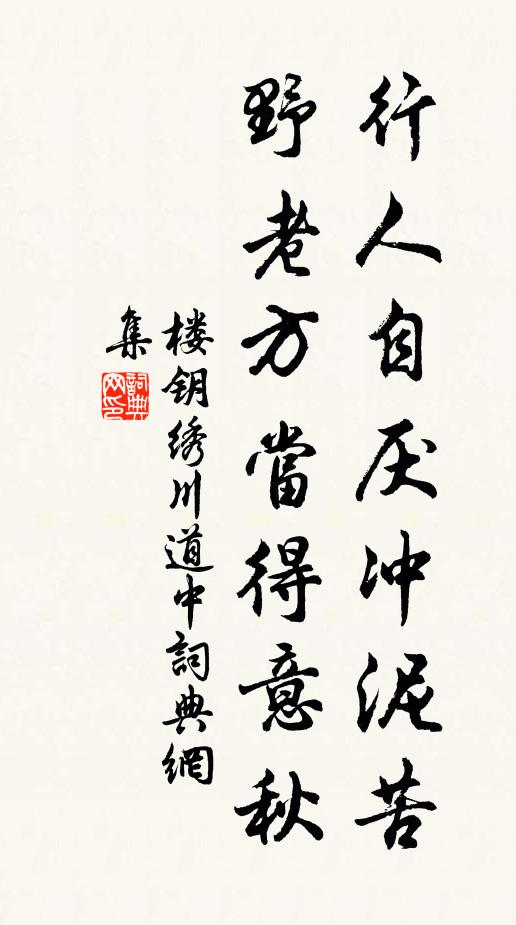 行人自厌冲泥苦
野老方當得意秋
楼钥绣川道中詞典網
集
詞典
网印